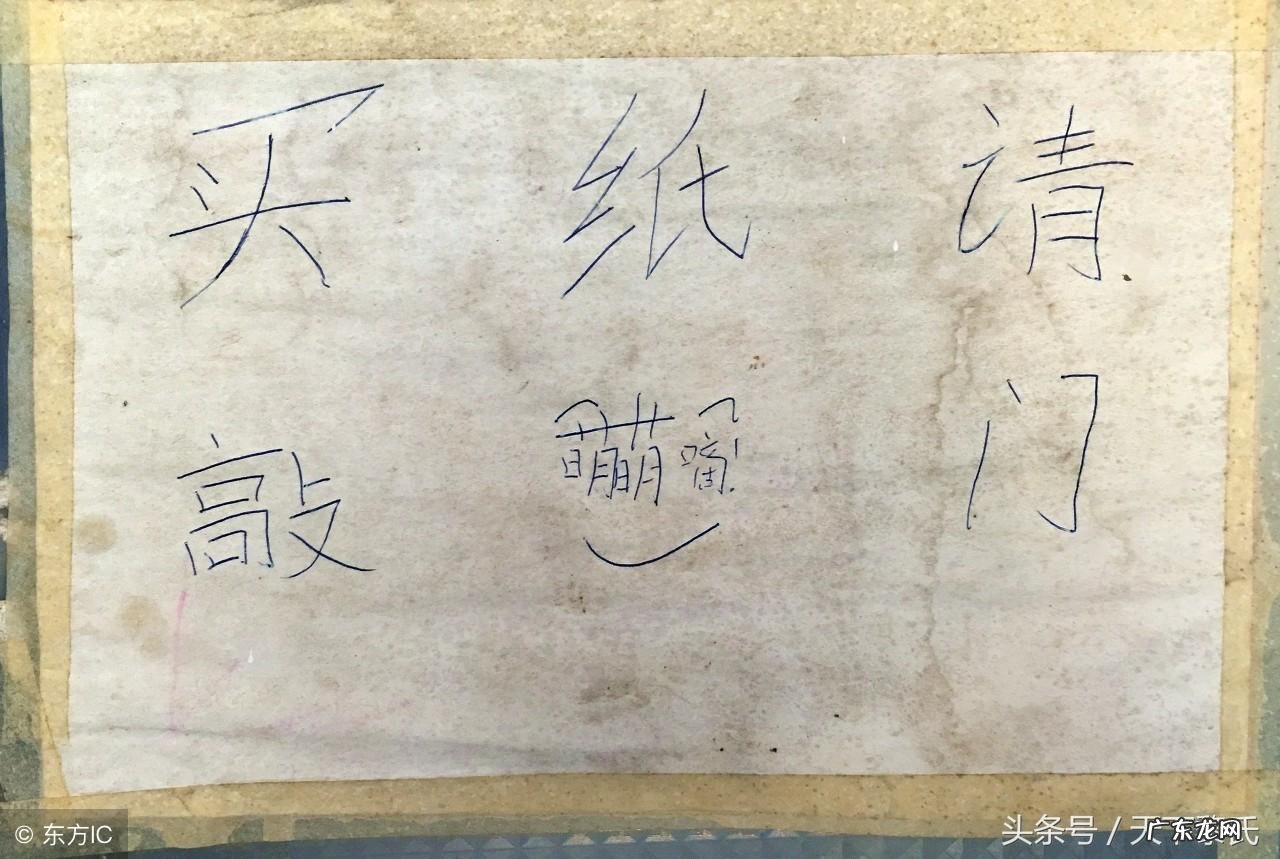 买 纸 请
敲 萌萌嗒! 门
© 东方IC
头条号 / 天
广东龙网